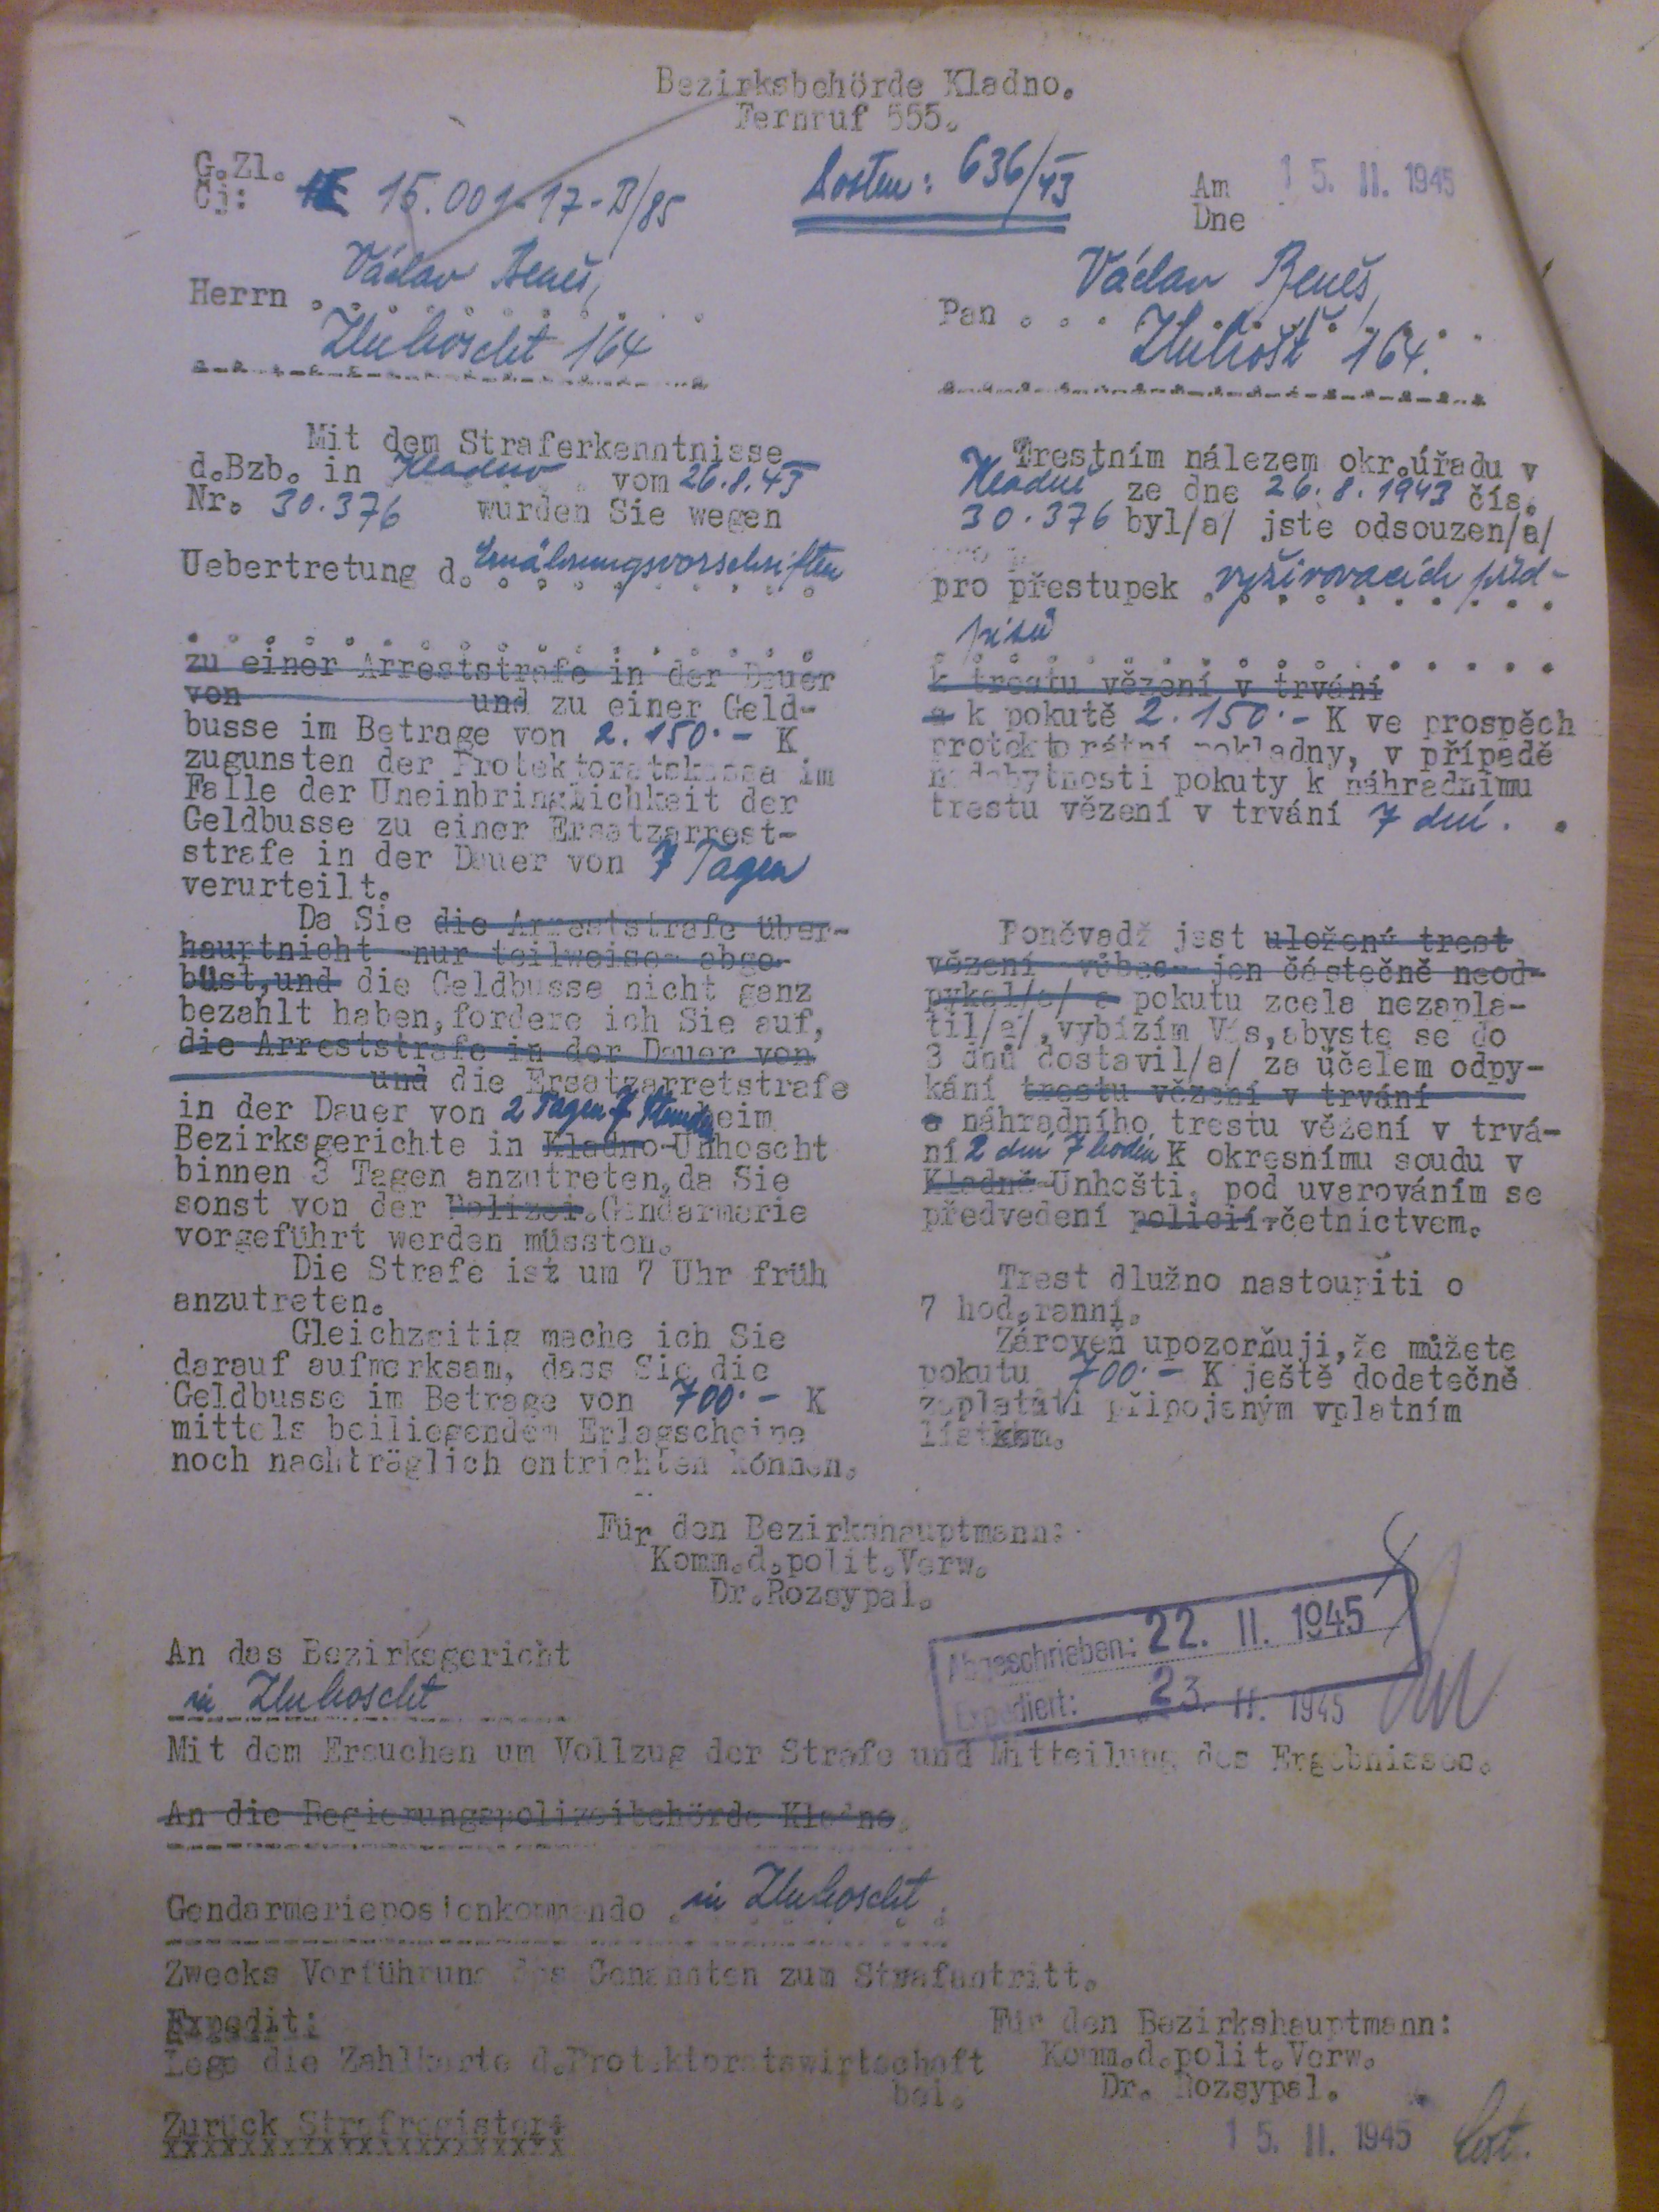 Bezirksbehörde Kladno.
Fernruf 555.
G.Zl.
Čj: 15.001-17-B/85
Kosten: 636/43
Am
Dne
15. II. 1945
Herrn Václav Beneš,
Unhoscht 164
Mit dem Straferkenntnisse
d.Bzb. in Kladno vom 26.8.43
Nr. 30.376 wurden Sie wegen
Uebertretung d. Ernährungsvorschriften
zu einer Arreststrafe in der Dauer
von und zu einer Geld-
busse im Betrage von 2.150.- K
zugunsten der Protektoratskassa im
Falle der Uneinbringlichkeit der
Geldbusse zu einer Ersatzarrest-
strafe in der Dauer von 7 Tagen
verurteilt.
Da Sie die Arreststrafe über-
hauptnicht -nur teilweise- abge-
büst,und die Geldbusse nicht ganz
bezahlt haben,fordere ich Sie auf,
die Arreststrafe in der Dauer von
und die Ersatzarretstrafe
in der Dauer von 2 Tagen 7 Stunden beim
Bezirksgerichte in Kladno-Unhoscht
binnen 3 Tagen anzutreten,da Sie
sonst von der Polizei.Gendarmerie
vorgeführt werden müssten.
Die Strafe ist um 7 Uhr früh
anzutreten.
Gleichzeitig mache ich Sie
darauf aufmerksam, dass Sie die
Geldbusse im Betrage von 700.- K
mittels beiliegendem Erlagscheine
noch nachträglich entrichten können.
Pan Václav Beneš,
Unhošť 164.
Trestním nálezem okr.úřadu v
Kladně ze dne 26.8.1943 čís.
30.376 byl/a/ jste odsouzen/a/
pro přestupek vyživovacích před-
pisů
k trestu vězení v trvání
a k pokutě 2.150.- K ve prospěch
protektorátní pokladny, v případě
nedobytnosti pokuty k náhradnímu
trestu vězení v trvání 7 dní.
Poněvadž jest uložený trest
vězení -vůbec- jen částečně neod-
pykal/a/ a pokutu zcela nezapla-
til/a/,vybízím Vás,abyste se do
3 dnů dostavil/a/ za účelem odpy-
kání trestu vězení v trvání
a náhradního trestu vězení v trvá-
ní 2 dní 7 hodin K okresnímu soudu v
Kladně-Unhošti, pod uvarováním se
předvedení policií-četnictvem.
Trest dlužno nastoupiti o
7 hod.ranní.
Zároveň upozorňuji,že můžete
pokutu 700.- K ještě dodatečně
zaplatiti připojeným vplatním
lístkem.
Für den Bezirkshauptmann:
Komm.d.polit.Verw.
Dr.Rozsypal.
Abgeschrieben: 22. II. 1945
Expediert: 23. II. 1945
An das Bezirksgericht
in Unhoscht
Mit dem Ersuchen um Vollzug der Strafe und Mitteilung des Ergebnisses.
An die Regierungspolizeibehörde Kladno.
Gendarmeriepostenkommando in Unhoscht
Zwecks Vorführung des Genannten zum Strafantritt.
Expedit:
Lege die Zahlkarte d.Protektoratswirtschaft
bei.
Zurück Strafregister:
xxxxxxxxxxxxxxxxxxxxx
Für den Bezirkshauptmann:
Komm.d.polit.Verw.
Dr. Rozsypal.
15. II. 1945